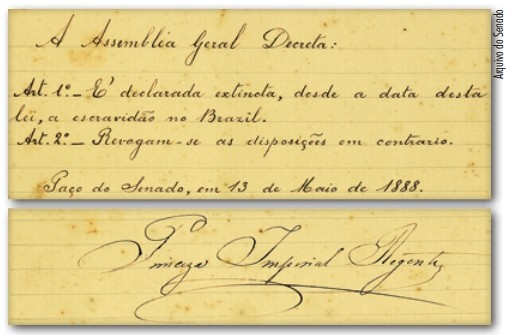 A Assembléa Geral Decreta:
Art. 1º_ E' declarada extincta, desde a data desta
lei, a escravidão no Brazil.
Art. 2º_ Revogam-se as disposições em contrario.
Paço do Senado, em 13 de Maio de 1888.
Princeza Imperial Regente
Arquivo do Senado